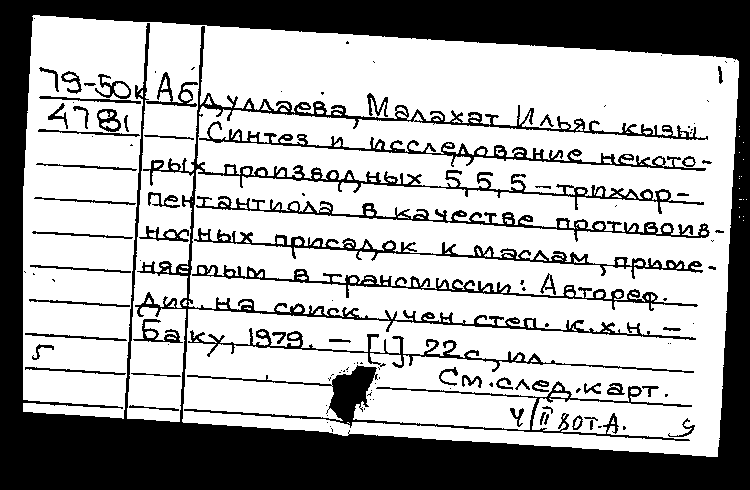 1
79-50к Абдуллаева, Малахат Ильяс кызы
4781 Синтез и исследование некото-
рых производных 5,5,5-трихлор-
пентантиола в качестве противоиз-
носных присадок к маслам, приме-
няемым в трансмиссии: Автореф.
Дис. на соиск. учен. степ. к.х.н. -
Баку, 1979. - [1], 22 с., ил.
См. след. карт.
4/II 80 т.А.